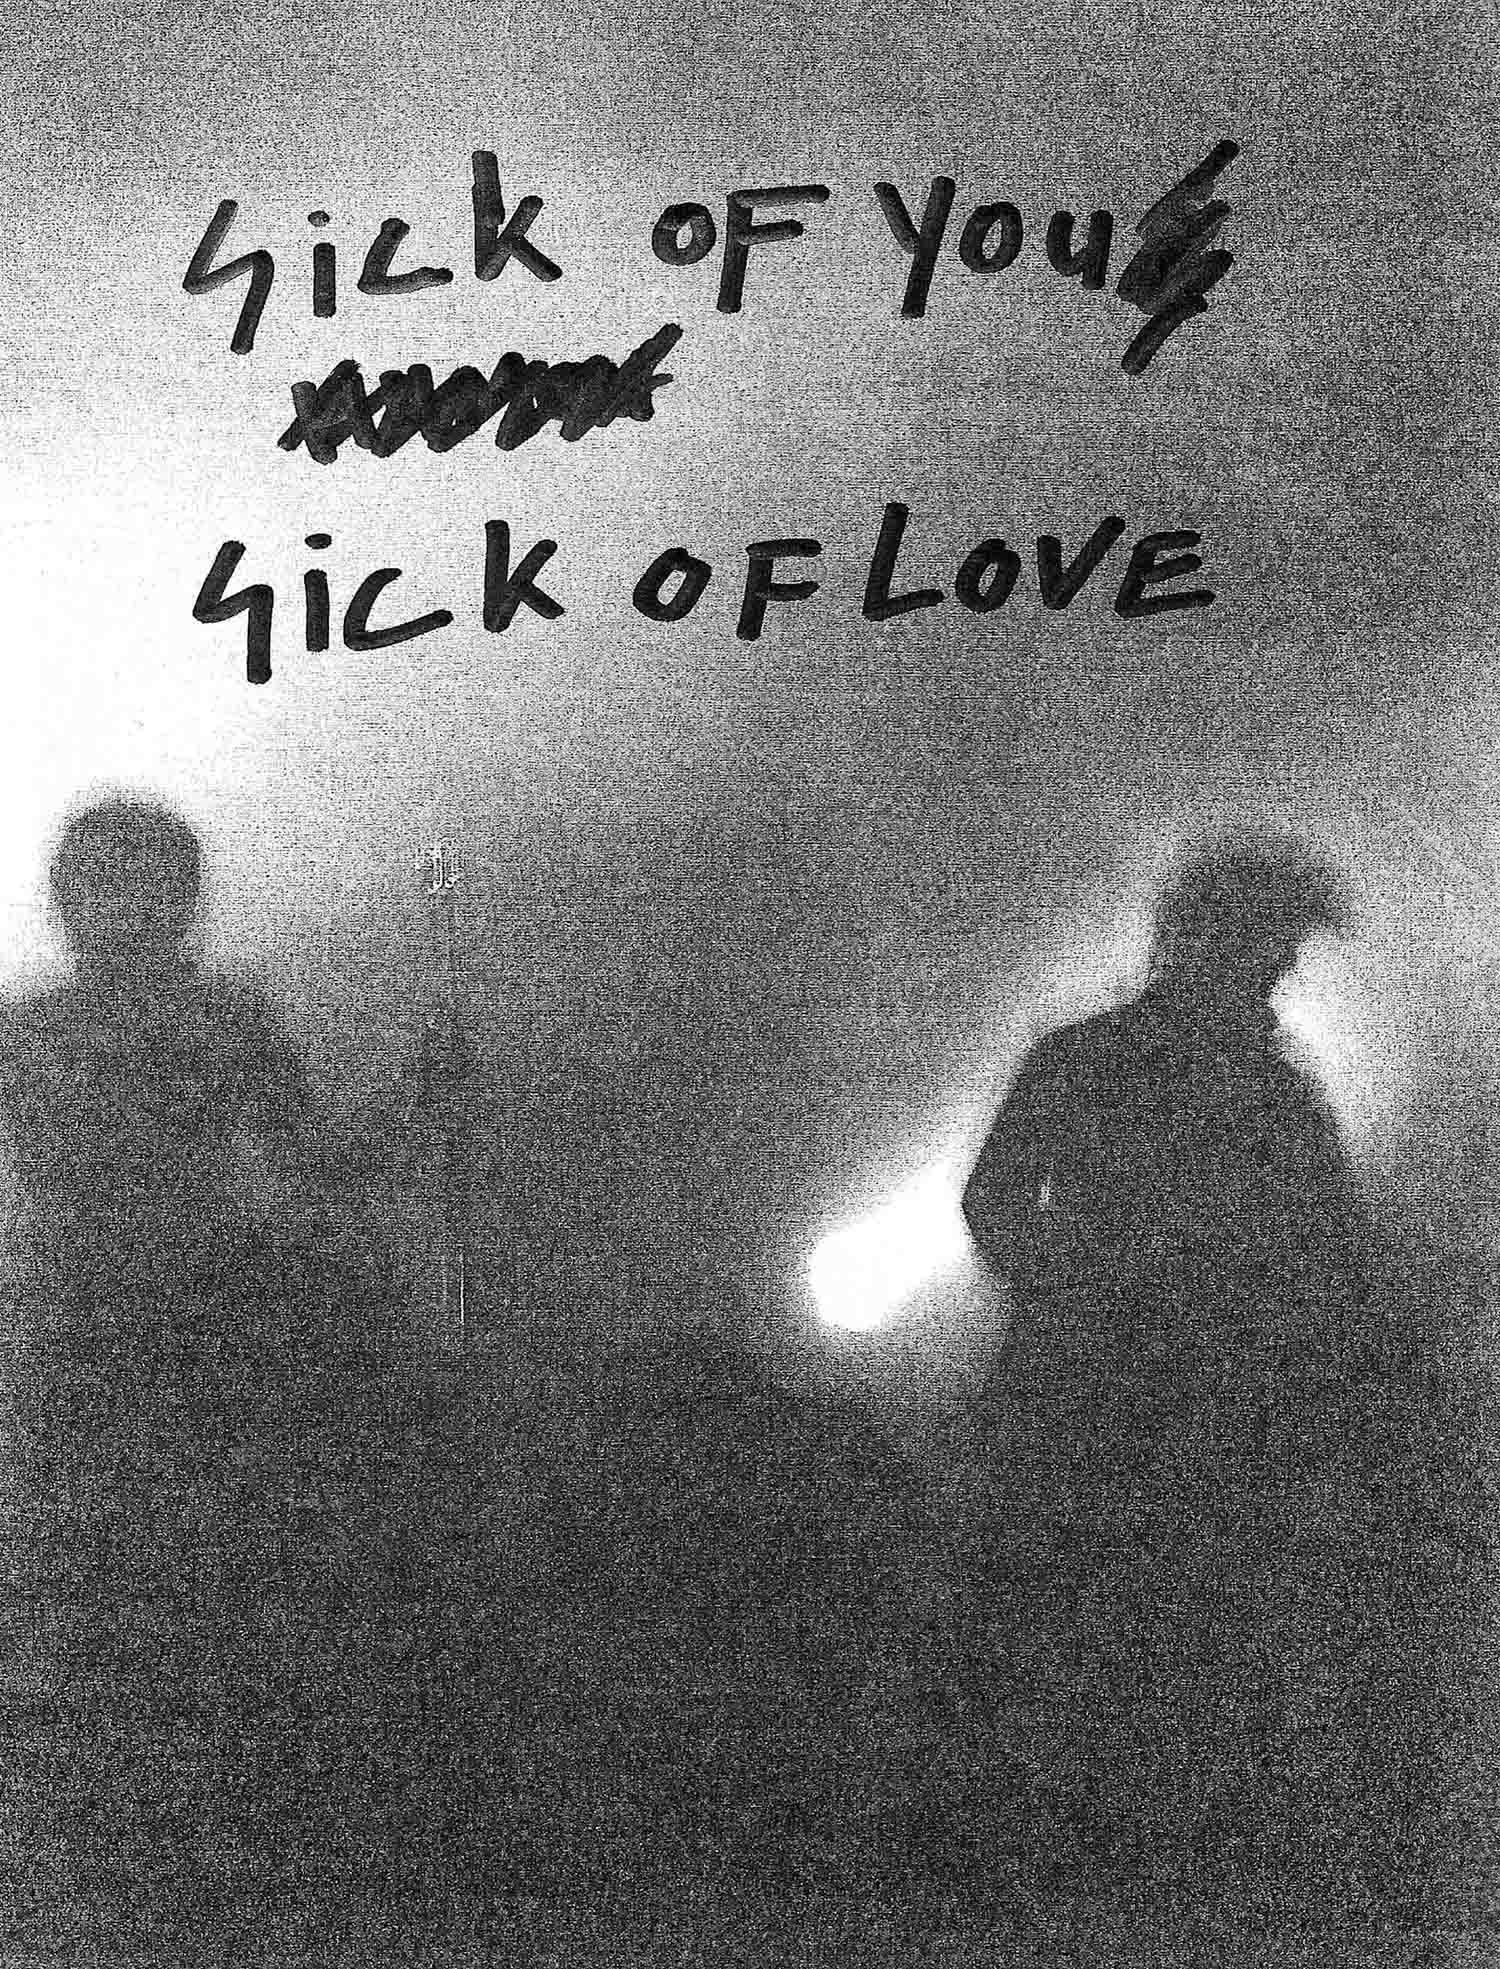 Sick OF YOU
Sick OF LOVE